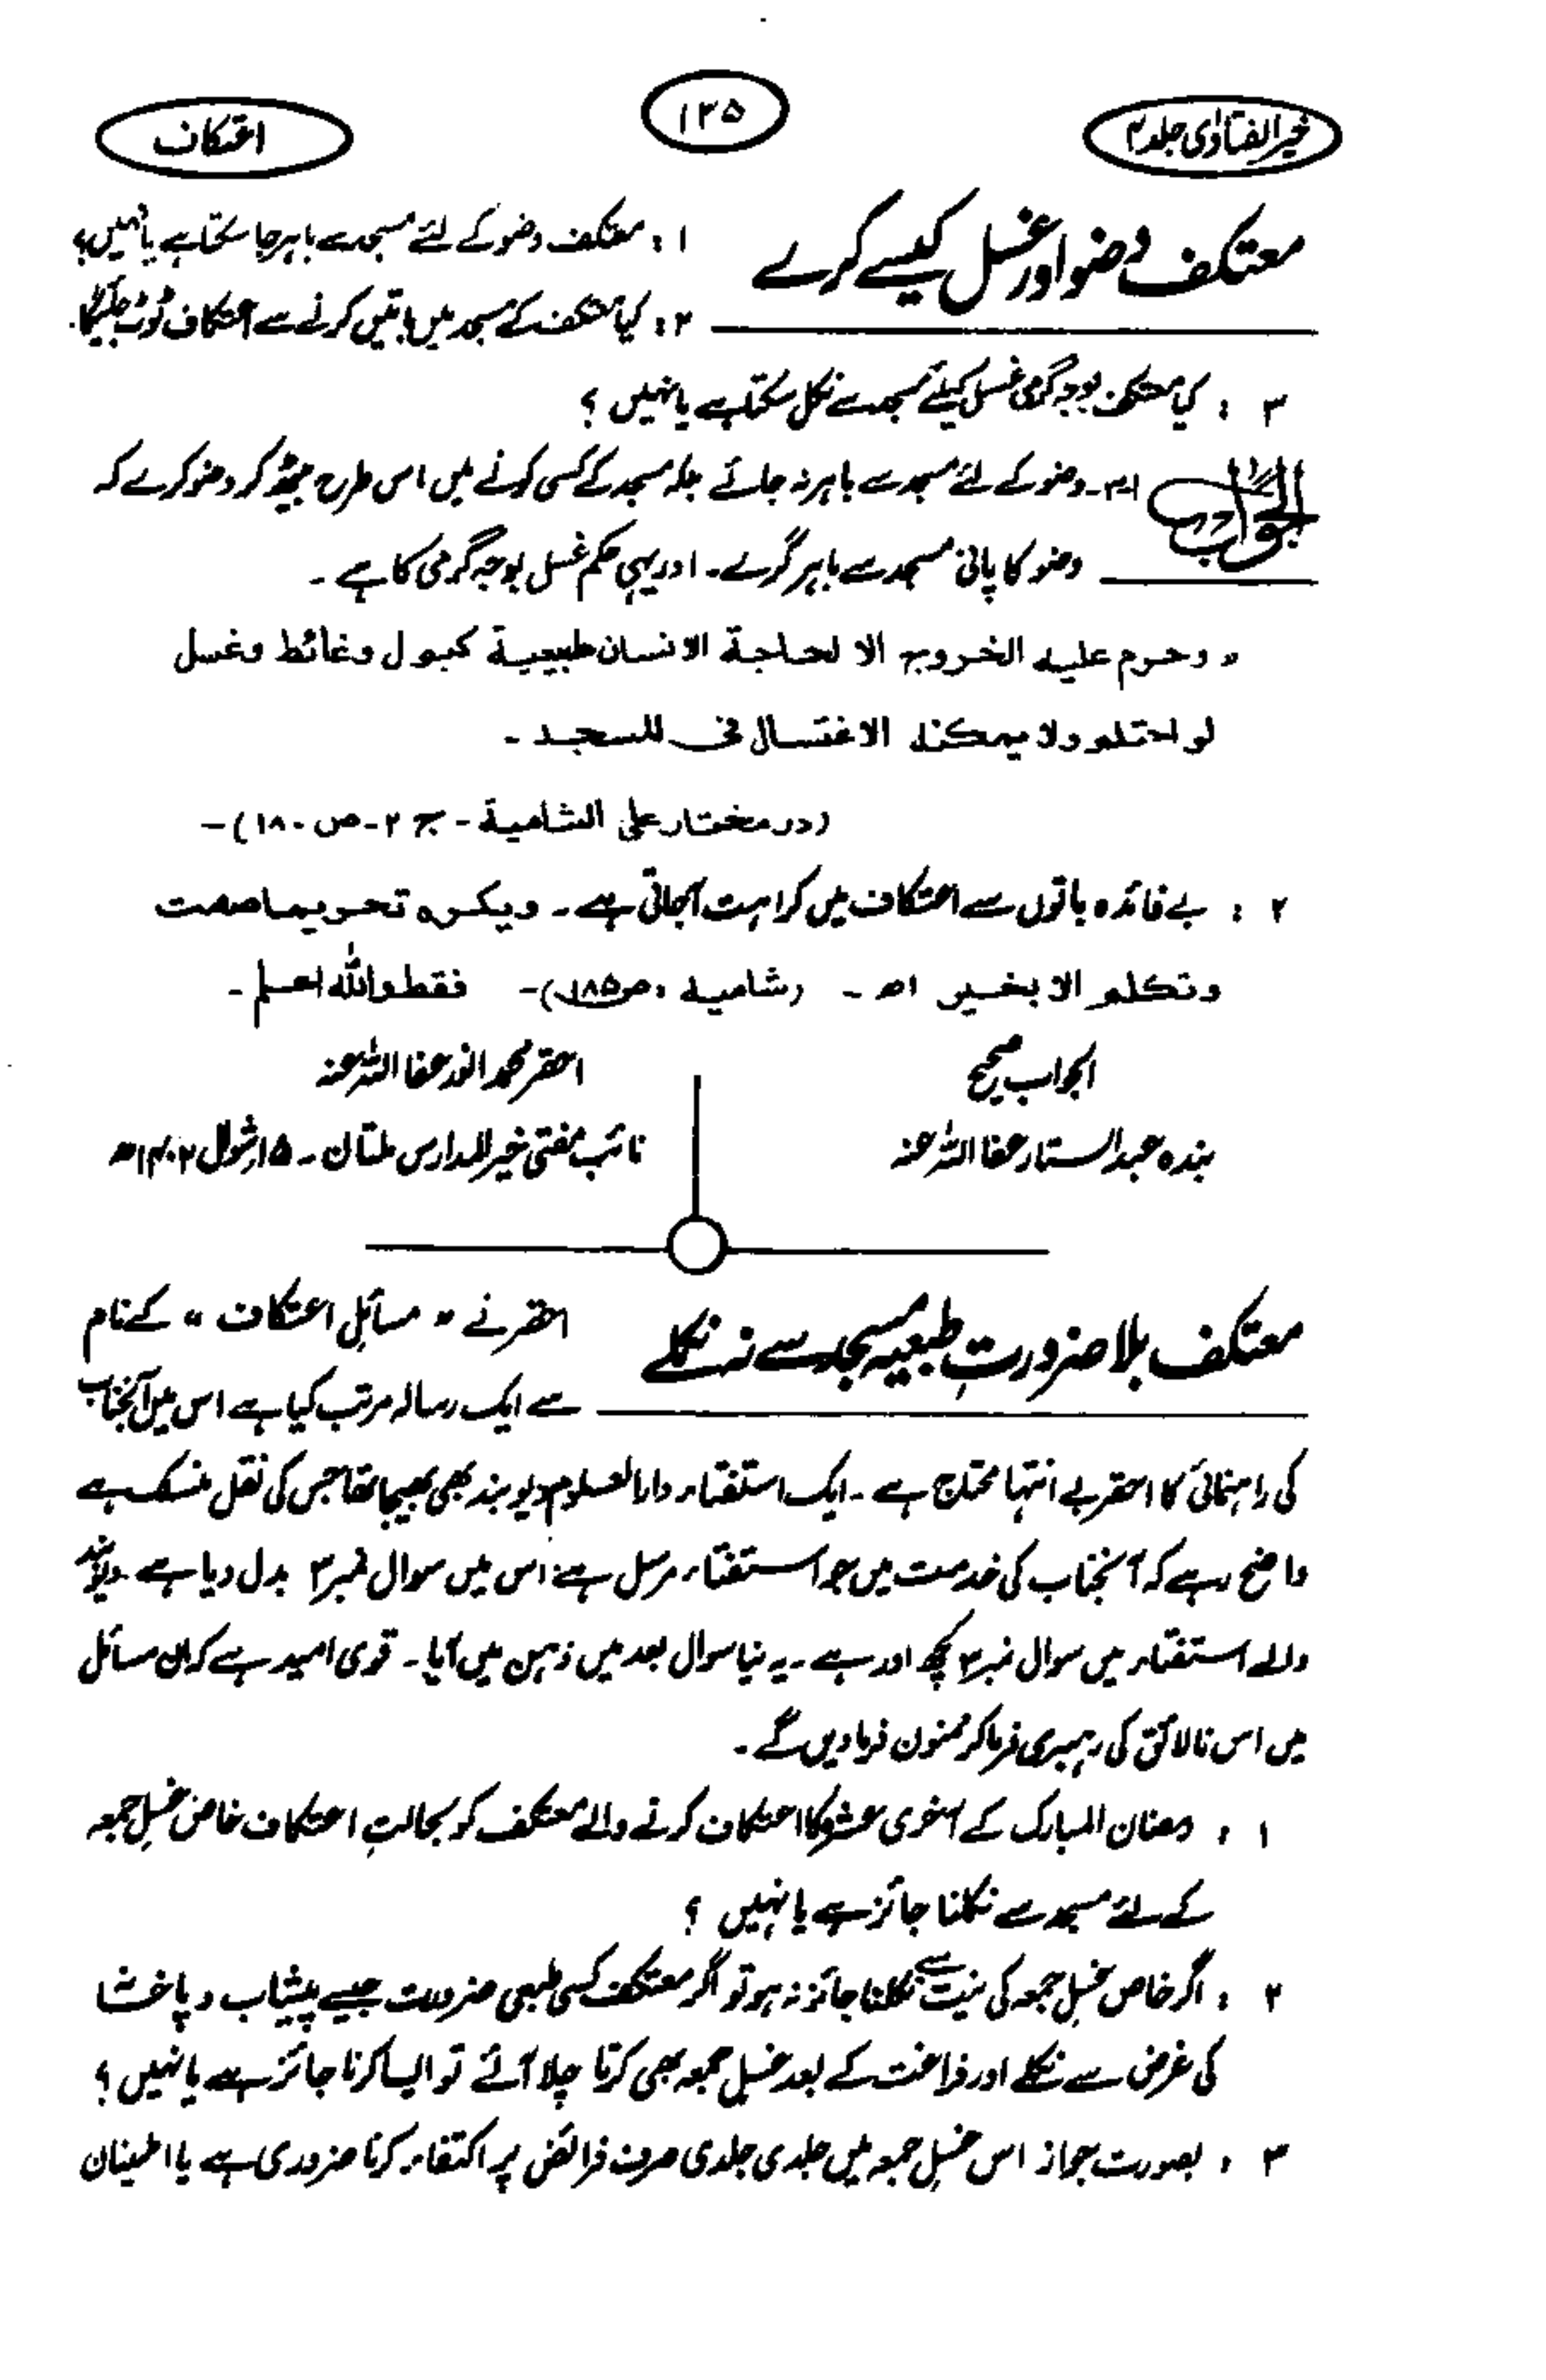 خیر الفتاویٰ جلد ۴
۱۳۵
اعتکاف
معتکف وضو اور غسل کیسے کرے
۱ : معتکف وضو کے لئے مسجد سے باہر جا سکتا ہے یا نہیں؟
۲ : کیا معتکف کے مسجد میں باتیں کرنے سے اعتکاف ٹوٹ جائیگا۔
۳ : کیا معتکف بوجہ گرمی غسل کیلئے مسجد سے نکل سکتا ہے یا نہیں ؟
الجواب ۱، ۳۔ وضو کے لئے مسجد سے باہر نہ جائے بلکہ مسجد کے کسی کونے میں اس طرح بیٹھ کر وضو کرے کہ
وضو کا پانی مسجد سے باہر گرے۔ اور یہی حکم غسل بوجہ گرمی کا ہے ۔
" وحرم علیه الخروج الا لحاجة الانسان طبیعیة کبول وغائط وغسل
لو احتلم ولا یمکنه الاغتسال فی المسجد ۔
(در مختار علی الشامیة ۔ ج ۲ ۔ ص ۱۸۰)۔
۲ : بے فائدہ باتوں سے اعتکاف میں کراہت آجاتی ہے ۔ ویکره تحریما صمت
وتکلم الا بخیر اھ ۔ (شامیه ، ص۱۸۵)۔ فقط واللہ اعلم ۔
احقر محمد انور عفا اللہ عنہ
نائب مفتی خیر المدارس ملتان ۔ ۱۵ شوال ۱۴۰۲ھ
الجواب صحیح
بندہ عبد الستار عفا اللہ عنہ
معتکف بلا ضرورتِ طبعیہ مسجد سے نہ نکلے
احقر نے " مسائلِ اعتکاف " کے نام
سے ایک رسالہ مرتب کیا ہے اس میں آنجناب
کی راہنمائی کا احقر بے انتہا محتاج ہے ۔ ایک استفتاء دارالعلوم دیوبند بھی بھیجا تھا جس کی نقل منسلک ہے
واضح رہے کہ آنجناب کی خدمت میں جو استفتاء مرسل ہے اس میں سوال نمبر ۳ بدل دیا ہے ۔ دیوبند
والے استفتاء میں سوال نمبر ۳ کچھ اور ہے ۔ یہ نیا سوال بعد میں ذہن میں آیا ۔ قوی امید ہے کہ ان مسائل
میں اس نالائق کی رہبری فرما کر ممنون فرمادیں گے ۔
۱ : رمضان المبارک کے آخری عشرہ کا اعتکاف کرنے والے معتکف کو بحالتِ اعتکاف خاص غسلِ جمعہ
کے لئے مسجد سے نکلنا جائز ہے یا نہیں ؟
۲ : اگر خاص غسلِ جمعہ کی نیت سے نکلنا جائز نہ ہو تو اگر معتکف کسی طبعی ضرورت جیسے پیشاب و پاخانہ
کی غرض سے نکلے اور فراغت کے بعد غسلِ جمعہ بھی کرتا چلا آئے تو ایسا کرنا جائز ہے یا نہیں ؟
۳ : بصورت جواز اس غسلِ جمعہ میں جلدی جلدی صرف فرائض پر اکتفاء کرنا ضروری ہے یا اطمینان